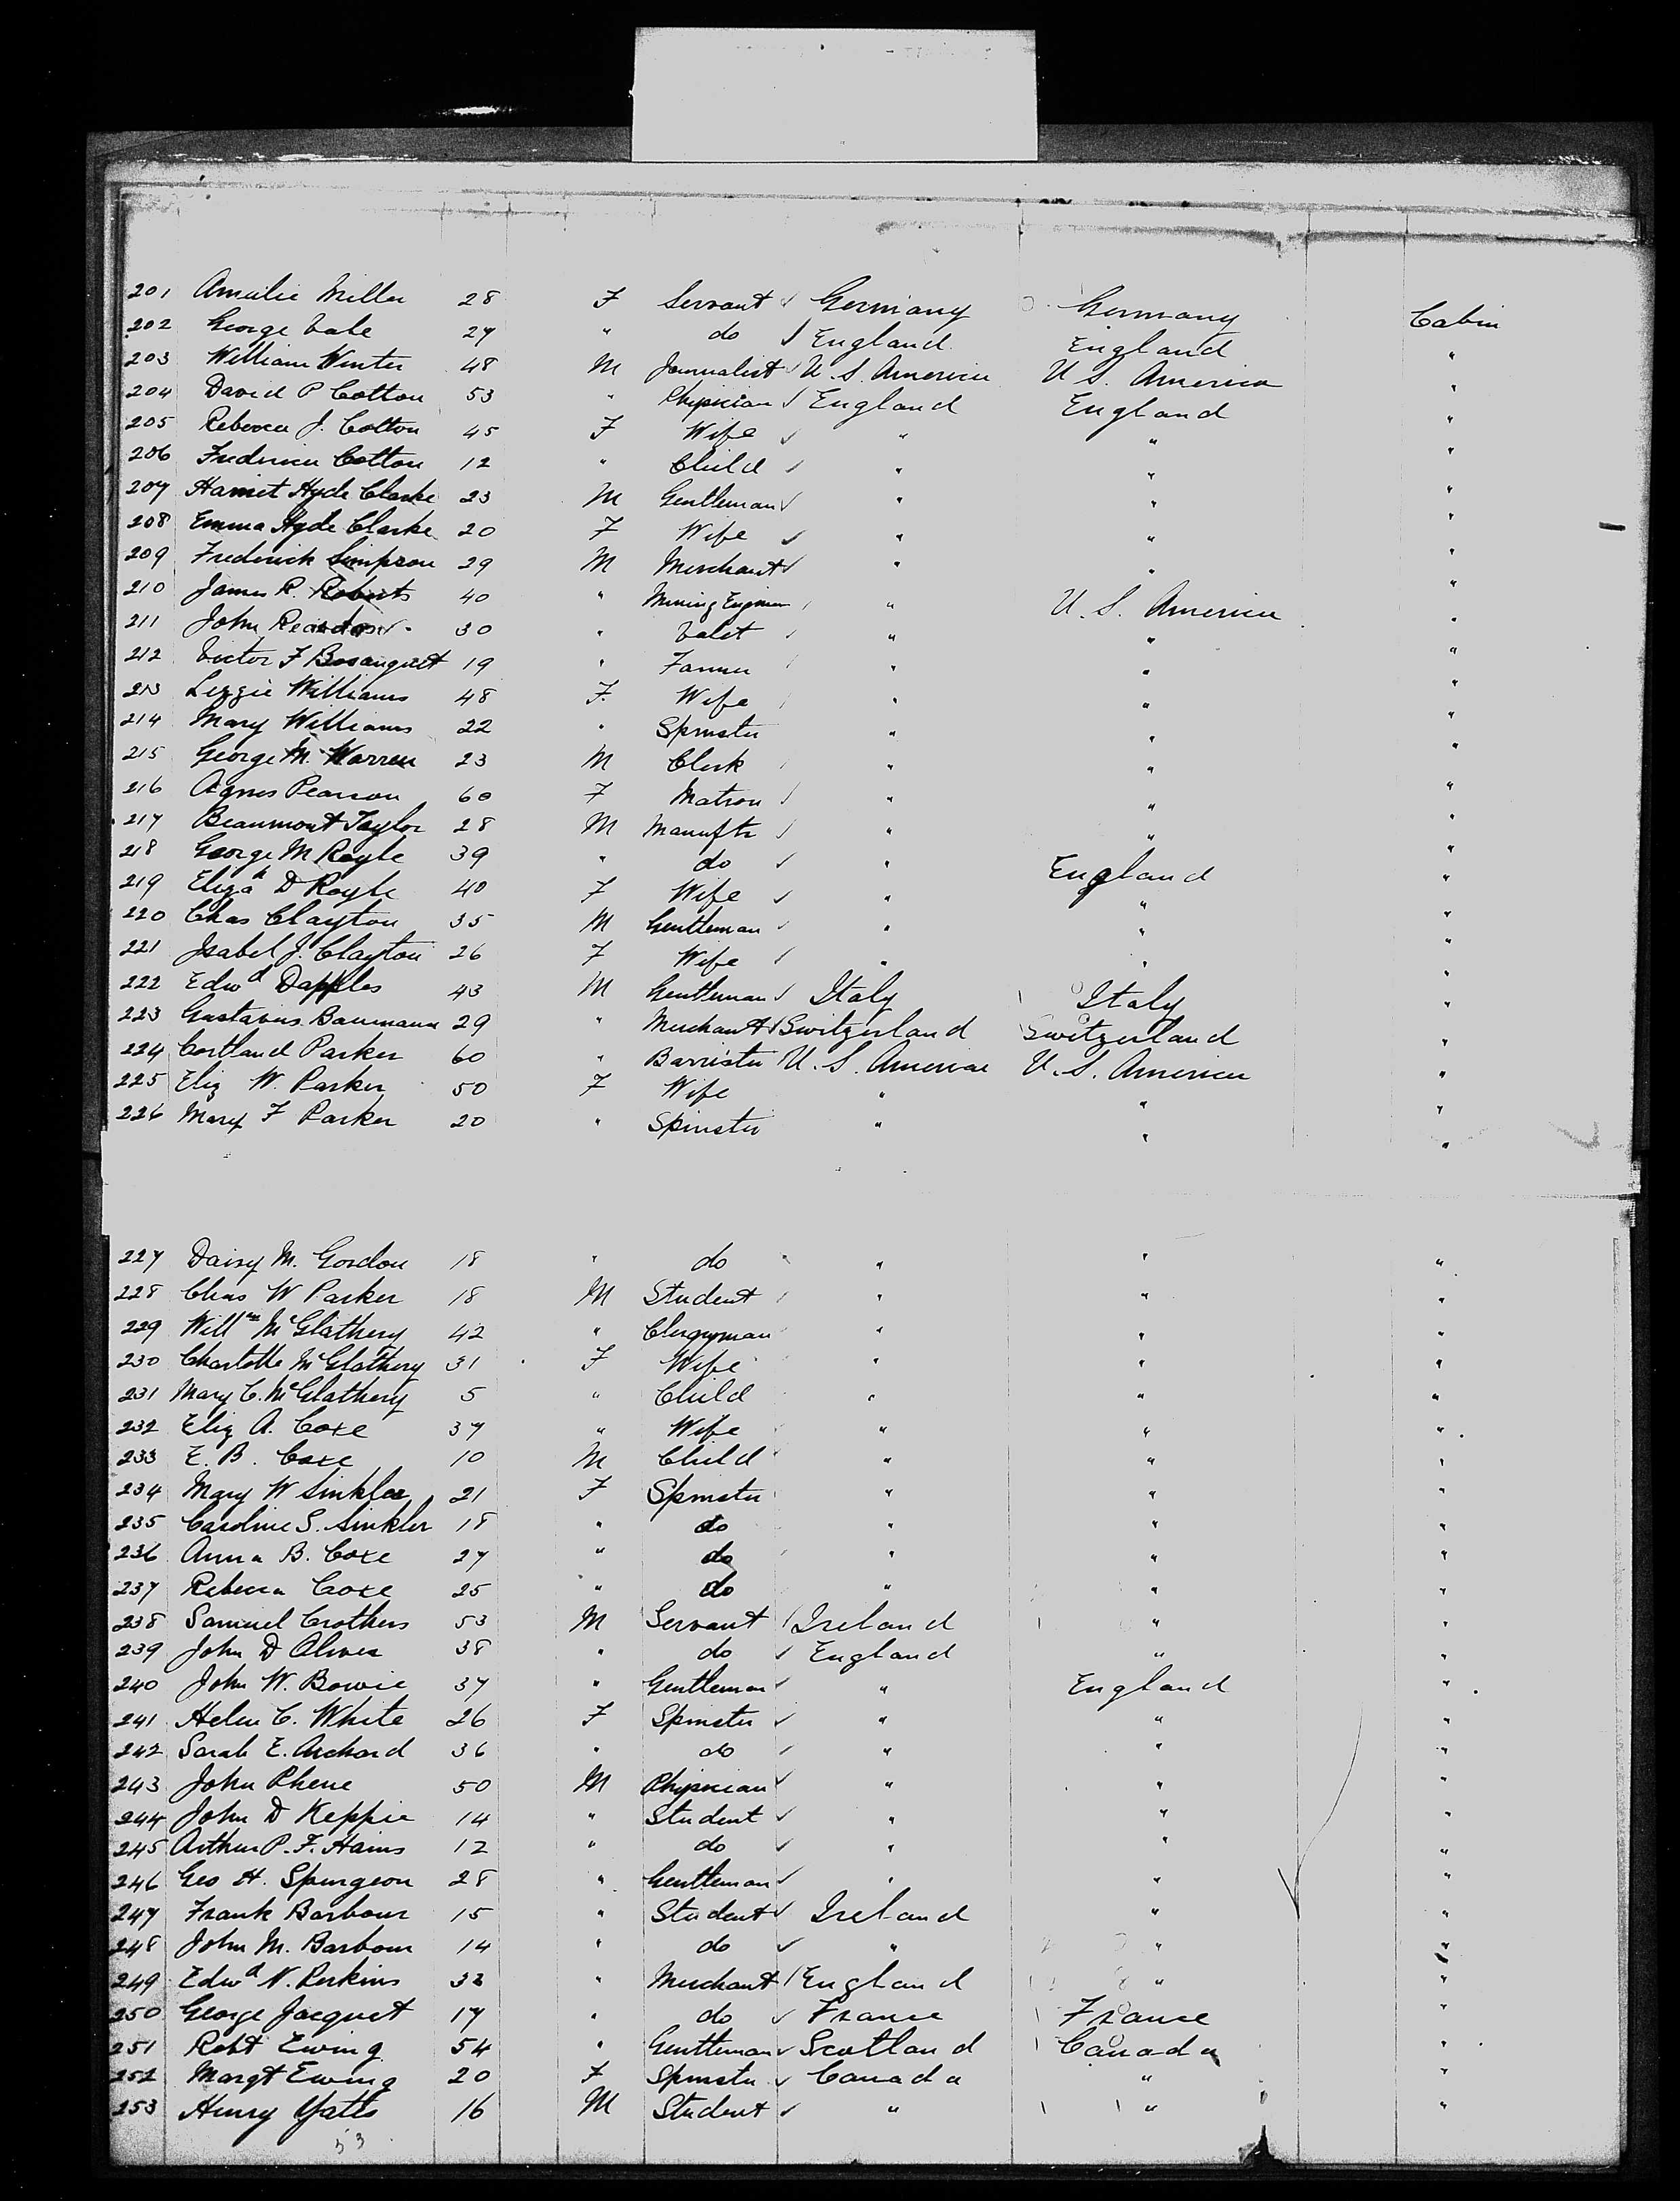 201 Amalie Miller 28 F Servant Germany Germany Cabin
202 George Vale 27 " do England England "
203 William Winter 48 M Journalist U.S. America U.S. America "
204 David P Cotton 53 " Physician England England "
205 Rebecca J. Cotton 45 F Wife " " "
206 Frederica Cotton 12 " Child " " "
207 Hyde Clarke 23 M Gentleman " " "
208 Emma Hyde Clarke 20 F Wife " " "
209 Frederick Simpson 29 M Merchant " " "
210 James R. Roberts 40 " Mining Engineer " U.S. America "
211 John 30 " Valet " " "
212 Victor F Bosanquet 19 " Farmer " " "
213 Lizzie Williams 48 F. Wife " " "
214 Mary Williams 22 " Spinster " " "
215 George M. Warren 23 M Clerk " " "
216 Agnes Pearson 60 F Matron " " "
217 Beaumont Taylor 28 M Manuftr " " "
218 George M Royle 39 " do " England "
219 Elizah D Royle 40 F Wife " " "
220 Chas Clayton 35 M Gentleman " " "
221 Isabel J. Clayton 26 F Wife " " "
222 Edwd Dapples 43 M Gentleman Italy Italy "
223 Gustavus Baumann 29 " Merchant Switzerland Switzerland "
224 Cortland Parker 60 " Barrister U.S. America U.S. America "
225 Eliz W. Parker 50 F Wife " " "
226 Mary F Parker 20 " Spinster " " "
227 Daisy M. Gordon 18 " do " " "
228 Chas W Parker 18 M Student " " "
229 Willm McGlathery 42 " Clergyman " " "
230 Charlotte McGlathery 31 F Wife " " "
231 Mary C. McGlathery 5 " Child " " "
232 Eliz A. Coxe 37 " Wife " " "
233 E. B. Coxe 10 M Child " " "
234 Mary W Sinkler 21 F Spinster " " "
235 Caroline S. Sinkler 18 " do " " "
236 Anna B. Coxe 27 " do " " "
237 Rebecca Coxe 25 " do " " "
238 Samuel Crothers 53 M Servant Ireland " "
239 John D Oliver 38 " do England " "
240 John W. Bowie 37 " Gentleman " England "
241 Helen C. White 26 F Spinster " " "
242 Sarah E. Archard 36 " do " " "
243 John Phene 50 M Physician " " "
244 John D Keppie 14 " Student " " "
245 Arthur P. F. Hains 12 " do " " "
246 Geo H. Spurgeon 28 " Gentleman " " "
247 Frank Barbour 15 " Student Ireland " "
248 John M. Barbour 14 " do " " "
249 Edwd N. Perkins 32 " Merchant England " "
250 George Jacquet 17 " do France France "
251 Robt Ewing 54 " Gentleman Scotland Canada "
252 Margt Ewing 20 F Spinster Canada " "
253 Henry Yatts 16 M Student " " "
53